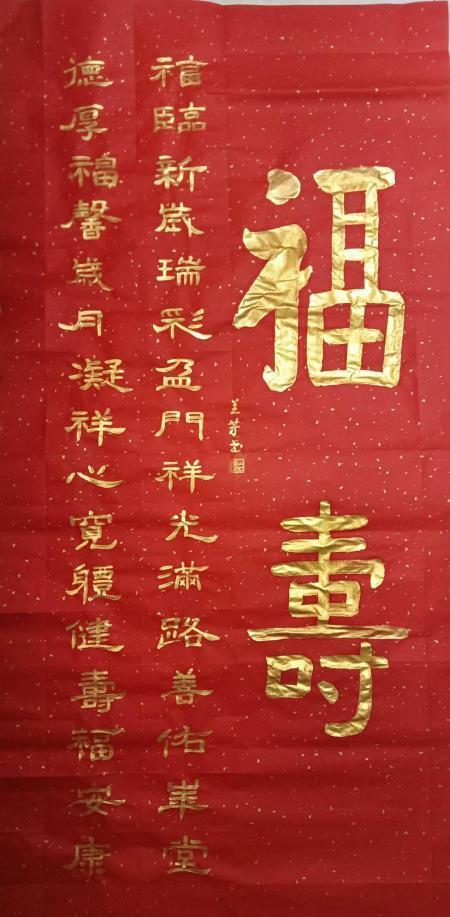 福壽
福臨新歲瑞彩盈門祥光滿路善佑華堂
德厚福馨歲月凝祥心寬體健壽福安康